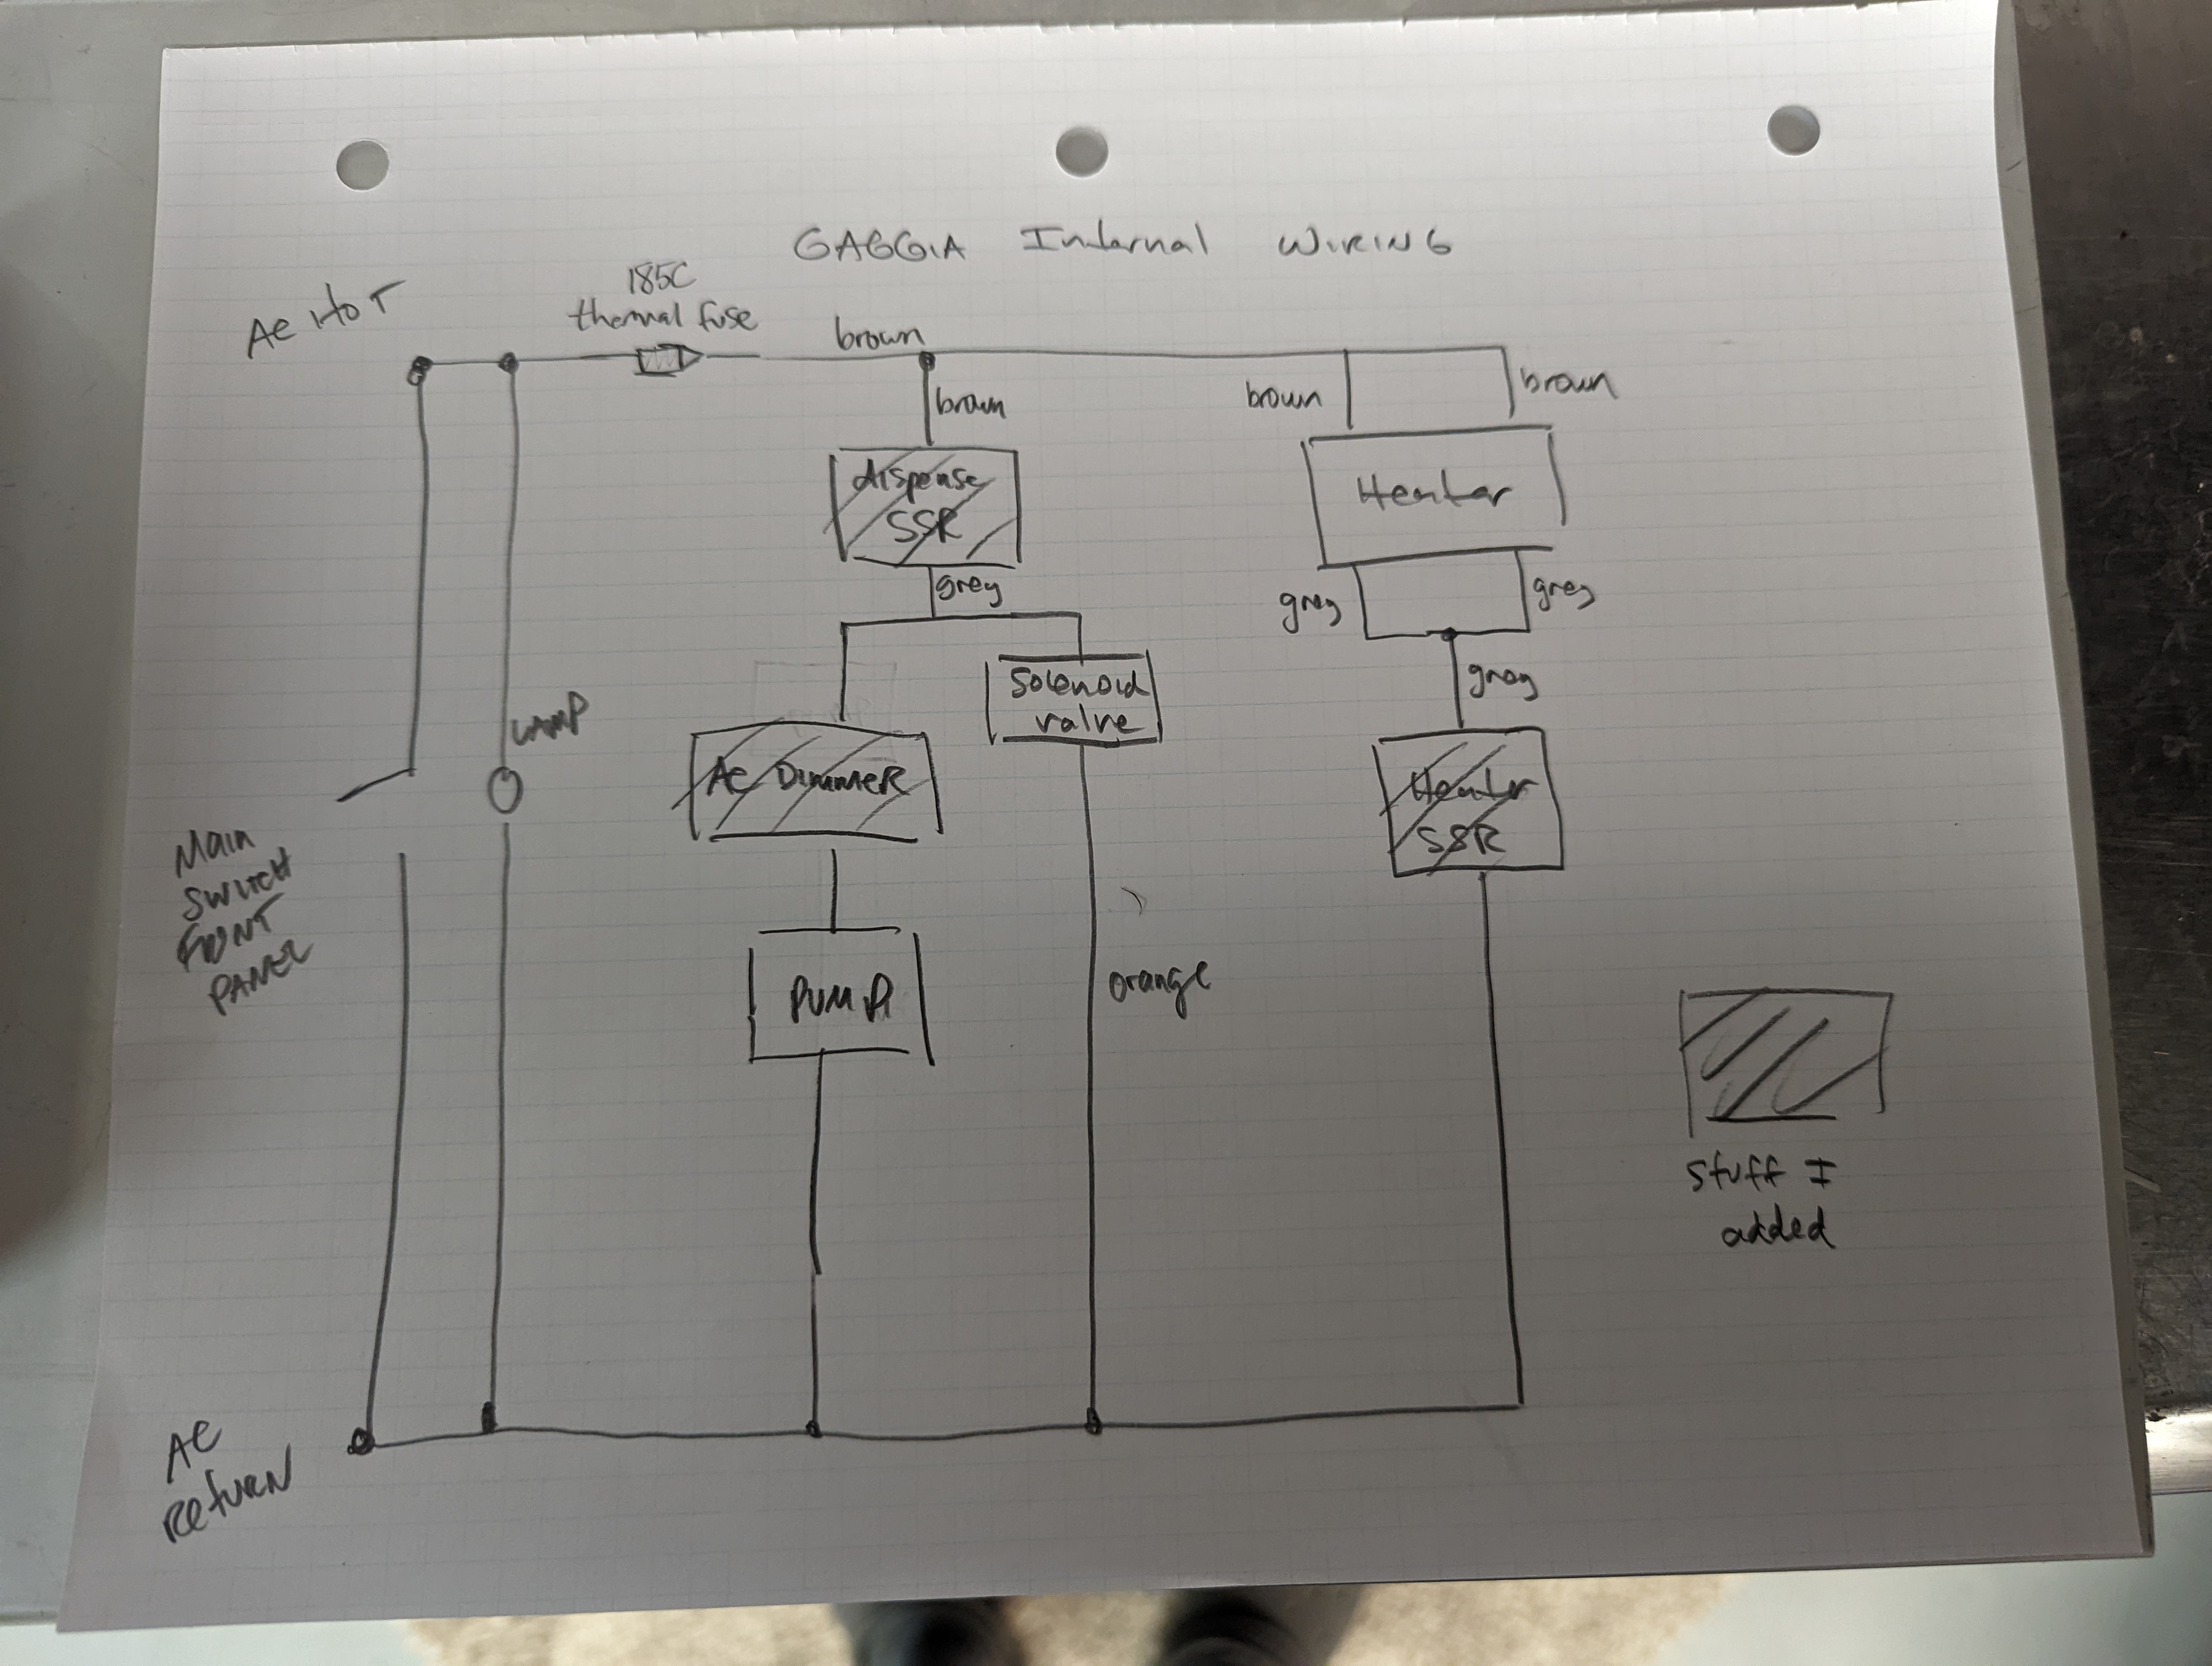 GAGGIA Internal WIRING
AC HOT
185C
thermal fuse
brown
brown
brown
brown
dispense
SSR
Heater
grey
grey
grey
Solenoid
valve
grey
LAMP
AC DimmeR
Heater
SSR
Main
SWitcH
FONT
PANEL
PUMP
orange
Stuff I
added
AC
RetURN